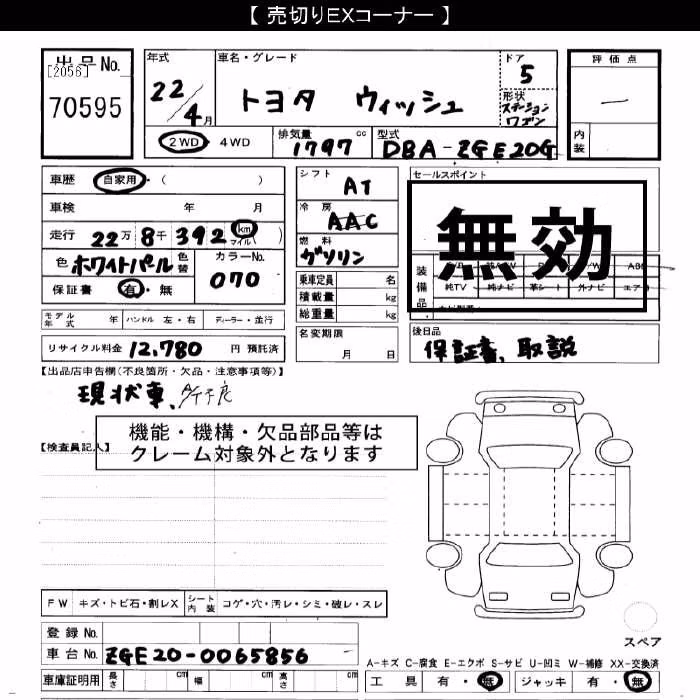 【 売切りEXコーナー 】
出品No.
[2056]
70595
年式
22/4月
車名・グレード
トヨタ ウィッシュ
ドア
5
形状
ステーションワゴン
評価点
―
内装
2WD ・ 4WD
排気量
1797 cc
型式
DBA-ZGE20G
車歴 自家用・( )
車検 年 月
走行 22万8千392 km マイル ( )
色 ホワイトパール 色替
カラーNo.
070
保証書 有・無
シフト
AT
冷房
AAC
燃料
ガソリン
乗車定員 名
積載量 kg
総重量 kg
セールスポイント
無効
装備品
純TV 純ナビ 革シート 外ナビ エアB
モデル年式 年 ハンドル 左・右 ディーラー・並行
リサイクル料金 12,780 円 預託済
名変期限
月 日
後日品
保証書、取説
【出品店申告欄(不良箇所・欠品・注意事項等)】
現状車、
機能・機構・欠品部品等は
クレーム対象外となります
【検査員記入】
FW キズ・トビ石・割レX
シート内装 コゲ・穴・汚レ・シミ・破レ・スレ
登録No.
車台No. ZGE20-0065856
車庫証明用 長さ cm 幅 cm 高さ cm
スペア
A-キズ C-腐食 E-エクボ S-サビ U-凹ミ W-補修 XX-交換済
工具 有・無 ジャッキ 有・無